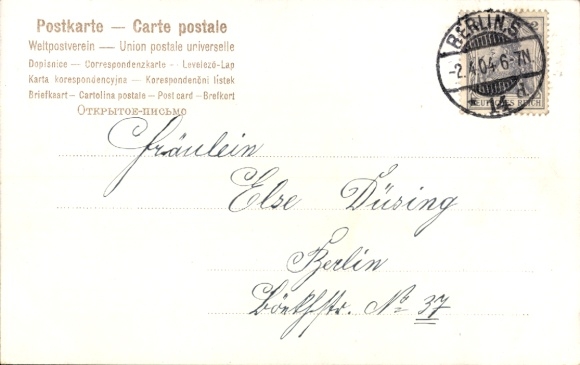 Postkarte — Carte postale
Weltpostverein — Union postale universelle
Dopisnice — Correspondenzkarte — Levelező-Lap
Karta korespondencyjna — Korespondenčni listek
Briefkaart — Cartolina postale — Post card — Brefkort
Открытое-письмо
BERLIN.S.
-2.4.04.6-7N.
14 d
DEUTSCHES REICH
Fräulein
Else Düsing
Berlin
Böckhstr. No 37